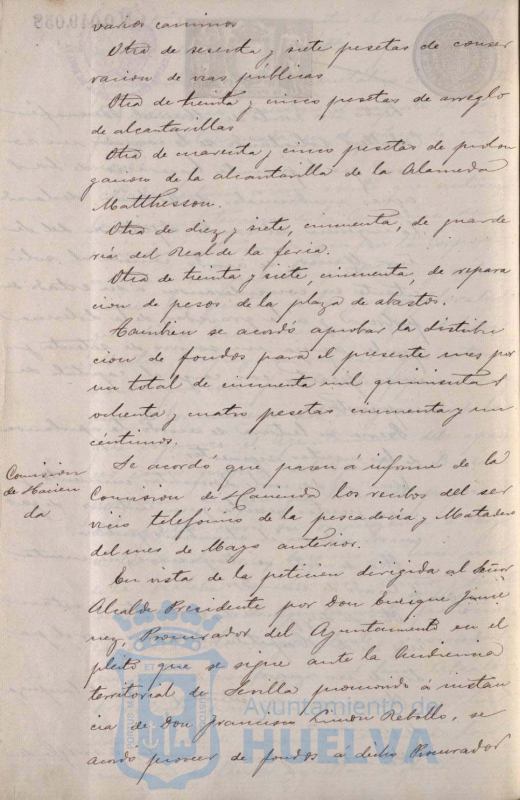 varios caminos
Otra de sesenta y siete pesetas de conser
vacion de vias públicas
Otra de treinta y cinco pesetas de arreglo
de alcantarillas
Otra de cuarenta y cinco pesetas de prolon
gacion de la alcantarilla de la Alameda
Matthesson.
Otra de diez y siete, cincuenta, de guarde
ria del Real de la feria.
Otra de treinta y siete, cincuenta, de repara
cion de pesos de la plaza de abastos.
Tambien se acordó aprobar la distribu
cion de fondos para el presente mes por
un total de cincuenta mil quinientas
ochenta y cuatro pesetas cincuenta y un
céntimos.
Comision
de Hacien
da
Se acordó que pasen á informe de la
Comision de Hacienda los recibos del ser
vicio telefónico de la pescaderia y Matadero
del mes de Mayo anterior.
En vista de la peticion dirigida al Señor
Alcalde Presidente por Don Enrique Jime
nez, Procurador del Ayuntamiento en el
pleito que se sigue ante la Audiencia
territorial de Sevilla promovido á instan
cia de Don Francisco Limon Rebollo, se
acordó proveer de fondos á dicho Procurador
Ayuntamiento de
HUELVA